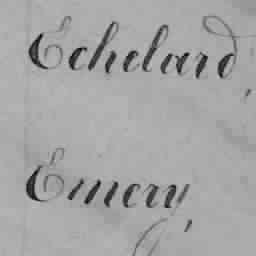 Echelard,
Emery,